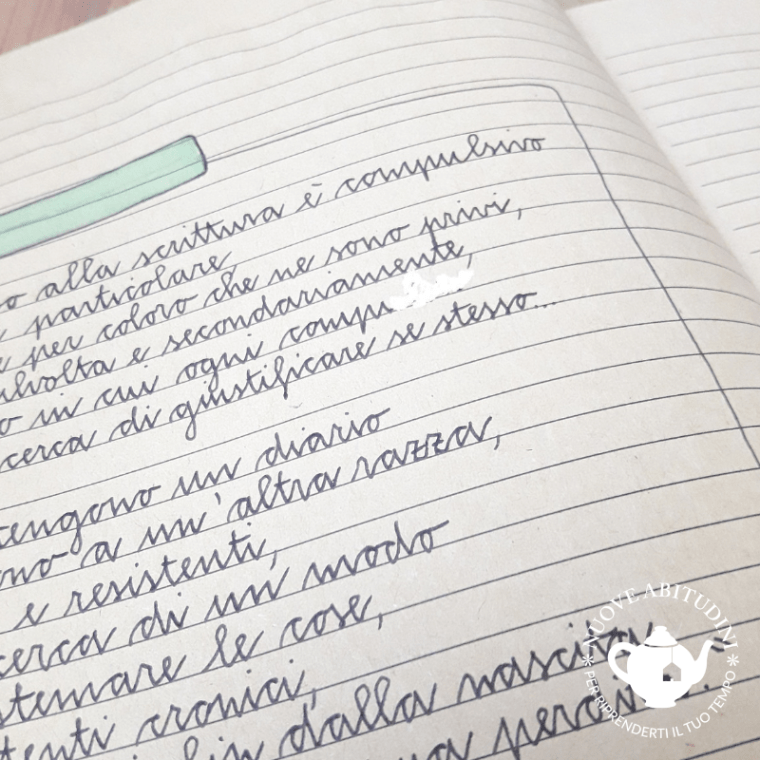 o alla scrittura è compulsivo
particolare
e per coloro che ne sono privi,
volta e secondariamente,
o in cui ogni compu
cerca di giustificare se stesso...
tengono un diario
no a un'altra razza,
e resistenti,
cerca di un modo
stemare le cose,
tenti cronici,
fin dalla nascita
NUOVE ABITUDINI
PER RIPRENDERTI IL TUO TEMPO